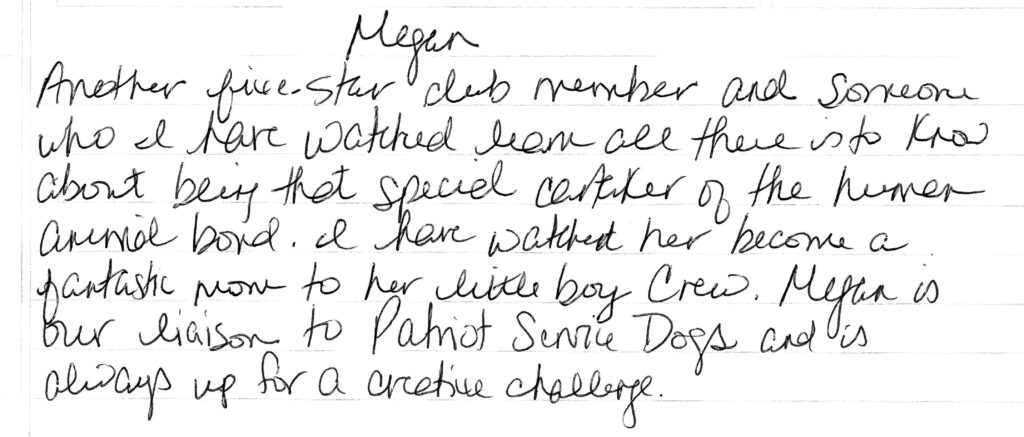 Megan
Another five-star club member and someone
who I have watched learn all there is to know
about being that special caretaker of the human
animal bond. I have watched her become a
fantastic mom to her little boy Crew. Megan is
our liaison to Patriot Service Dogs and is
always up for a creative challenge.